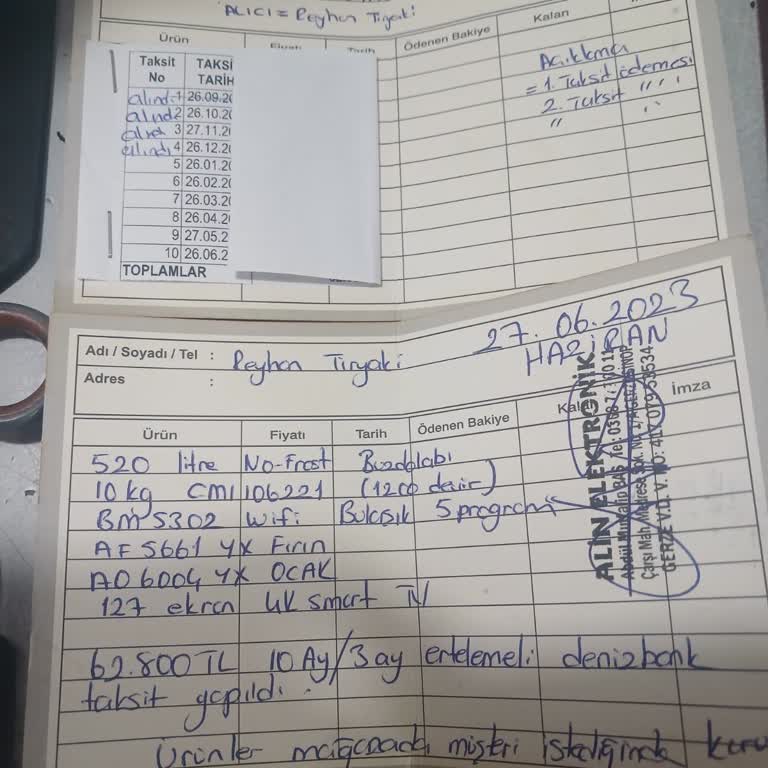 ALICI = Reyhan Tiryaki
Ürün Fiyatı Tarih Ödenen Bakiye Kalan
Açıklama
= 1. Taksit ödemesi
2. Taksit " "
"
Taksit No TAKSİ TARİH
alındı 1 26.09.20
alındı 2 26.10.20
alındı 3 27.11.20
alındı 4 26.12.20
5 26.01.20
6 26.02.20
7 26.03.20
8 26.04.20
9 27.05.2
10 26.06.2
TOPLAMLAR
27.06.2023
HAZİRAN
Adı / Soyadı / Tel : Reyhan Tiryaki
Adres :
Ürün Fiyatı Tarih Ödenen Bakiye Kal İmza
520 litre No-Frost Buzdolabı
10 kg CMI 106221 (1200 devir)
BM 5302 Wifi Bulaşık 5 program
AF 5661 YX Fırın
AO 6004 YX OCAK
127 ekran 4K smart TV
ALİN ELEKTRONİK
GERZE V.D. V. NO:
62.800 TL 10 Ay/3 ay ertelemeli denizbank
taksit yapıldı.
Ürünler mağazada müşteri istediğinde